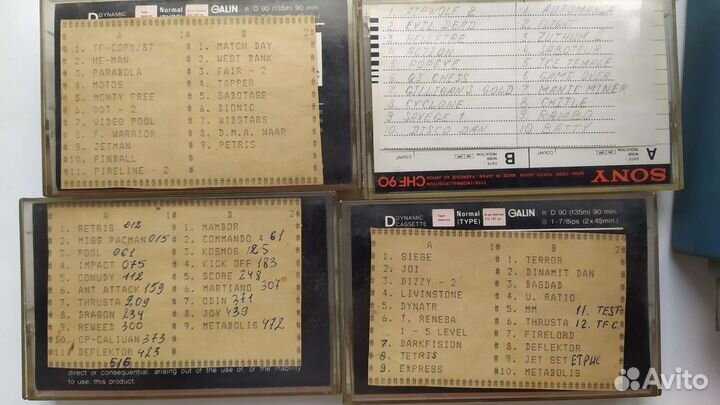 DYNAMIC
Normal
GALIN
R D 90 (135m) 90 min
A 1
1. TF-COPY/87
2. HE-MAN
3. PARABOLA
4. MOTOS
5. MONTY FREE
6. 007 - 2
7. VIDEO POOL
8. F. WARRIOR
9. JETMAN
10. PINBALL
11. FIRELINE - 2
B 2
1. MATCH DAY
2. WEST BANK
3. FAIR - 2
4. TAPPER
5. SABOTAGE
6. BIONIC
7. WIBSTARS
8. D.M.A. WAAR
9. PETRIS
1 AIRWOLF 2
2 EXIT DEAD
3
4
5 POPEYE
6 QS CHESS
7 GILLIGAN'S GOLD
8 CYCLONE
9 SAVEGE 1
10. DISCO DAN
1 AUTOMANIA
2
3
4 SABOTEUR
5 ICE TEMPLE
6 GAME OVER
7 MANIC MINER
8 CHITLE
9 RAMBO
10 BATTY
A
B
COUNT
COUNT
SONY
CHF 90
A 1
1. RETRIS 012
2. MISS PACMAN 015
3. POOL 061
4. IMPACT 075
5. CONUDY 112
6. ANT ATTACK 159
7. THRUSTA 209
8. DRAGON 234
9. REWEED 300
10. CP-CALIUAN 373
11 DEFLEKTOR 423
516
B 2
1. MAMBOR
2. COMMANDO 4 61
3. KOSMOS 125
4. KICK OFF 183
5. SCORE 248
6. MARTIANO 307
7. ODIN 371
8. JOV 439
9. METABOLIS 472
direct or consequential, arising out of the use of, or the inability
to use, this product.
DYNAMIC
CASSETTE
Normal
(TYPE I)
GALIN
R D 90 (135m) 90 min.
@ 1-7/8ips (2x45min.)
A 1
1. SIEGE
2. JOI
3. DIZZY - 2
4. LIVINSTONE
5. DYNATR
6. T. RENEGA
1 - 5 LEVEL
7. DARKFISION
8. TETRIS
9. EXPRESS
B 2
1. TERROR
2. DINAMIT DAN
3. BAGDAD
4. U. RATIO
5. MM 11. TEST
6. THRUSTA 12. TF C.
7. FIRELORD
8. DEFLEKTOR
9. JET SET
10. METABOLIS
Avito